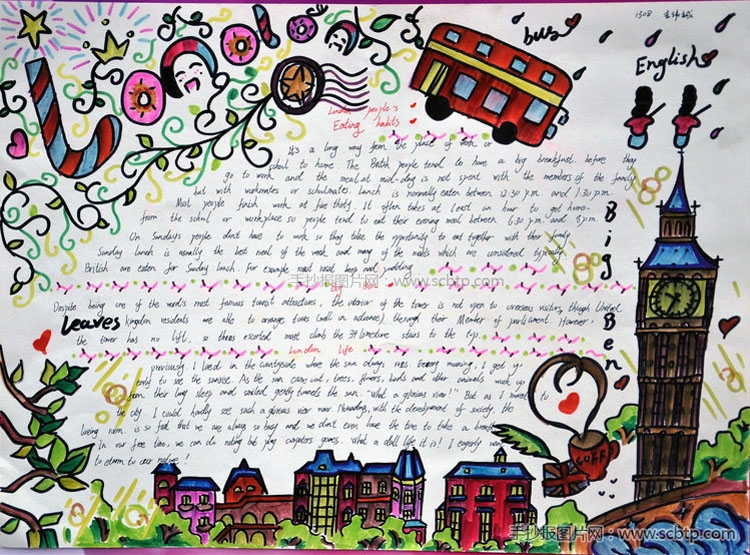 London
1308
bus
English
London people's
Eating habits
It's a long way from the place of work or
school to home. The British people tend to have a big breakfast before they
go to work and the meal at mid-day is not spent with the members of the family
but with workmates or schoolmates. Lunch is normally eaten between 12:30 p.m. and 1:30 p.m.
Most people finish work at five thirty. It often takes at least an hour to get home
from the school or workplace so people tend to eat their evening meal between 6:30 p.m. and 8 p.m.
On Sundays people don't have to work so they take the opportunity to eat together with their family
Sunday lunch is usually the best meal of the week and many of the meals which are considered typically
British are eaten for Sunday lunch. For example roast beef and pudding.
手抄报图片网：www.scbtp.com
Big Ben
Despite being one of the world's most famous tourist attractions, the interior of the tower is not open to overseas visitors, though United
Leaves
Kingdom residents are able to arrange tours (well in advance) through their Member of parliament. However,
the tower has no lift, so those escorted must climb the 334 limestone stairs to the top.
London life
previously I lived in the countryside where the sun always rises. Every morning, I get up
early to see the sunrise. As the sun came out, trees, flowers, birds and other animals wake up
from their long sleep and smiled gently towards the sun. "What a glorious view!" But as I moved to
the city, I could hardly see such a glorious view now. Nowadays, with the development of society, the
living is so fast that we are always so busy and we don't even have the time to take a break
in our free time, we can do nothing but play computer games. What a dull life it is! I eagerly
to return to our nature!
COFF
手抄报图片网：www.scbtp.com